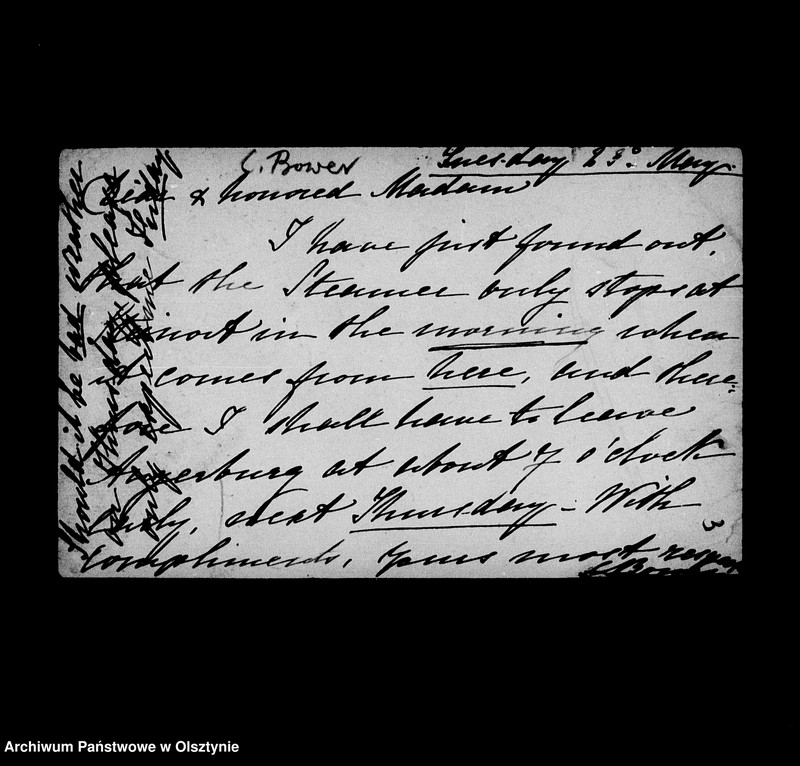 C. Bower
Tuesday 23º May.
Dear & honored Madam
I have just found out,
that the Steamer only stops at
in the morning when
it comes from here, and there=
fore I shall have to leave
Angerburg at about 7 o'clock
only, next Thursday - With
compliments, yours most
Should it be bad weather
on Thursday please
only expect me Friday.
3
Archiwum Państwowe w Olsztynie